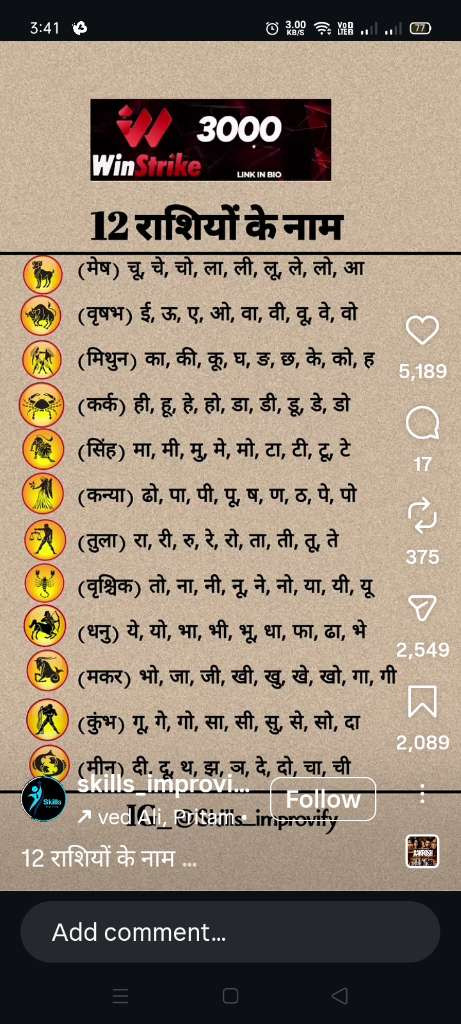 3:41
3.00 KB/S
VoD LTE
77
3000
WinStrike
LINK IN BIO
12 राशियों के नाम
(मेष) चू, चे, चो, ला, ली, लू, ले, लो, आ
(वृषभ) ई, ऊ, ए, ओ, वा, वी, वू, वे, वो
(मिथुन) का, की, कू, घ, ङ, छ, के, को, ह
5,189
(कर्क) ही, हू, हे, हो, डा, डी, डू, डे, डो
(सिंह) मा, मी, मु, मे, मो, टा, टी, टू, टे
17
(कन्या) ढो, पा, पी, पू, ष, ण, ठ, पे, पो
(तुला) रा, री, रु, रे, रो, ता, ती, तू, ते
375
(वृश्चिक) तो, ना, नी, नू, ने, नो, या, यी, यू
(धनु) ये, यो, भा, भी, भू, धा, फा, ढा, भे
2,549
(मकर) भो, जा, जी, खी, खु, खे, खो, गा, गी
(कुंभ) गू, गे, गो, सा, सी, सु, से, सो, दा
2,089
(मीन) दी, दू, थ, झ, ञ, दे, दो, चा, ची
skills_improvi...
Follow
Skills
ved Ali, Pritam •
IG_@Skills_improvify
12 राशियों के नाम ...
Add comment...